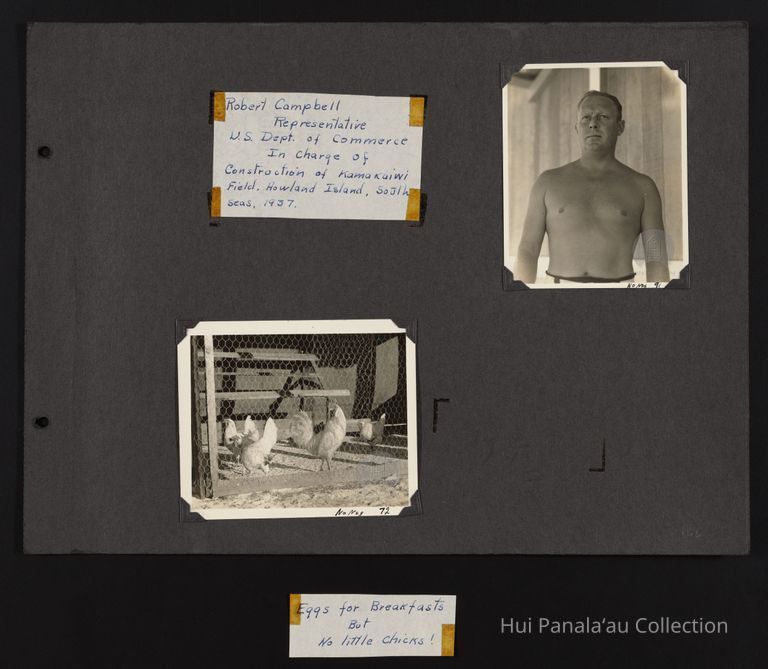 Robert Campbell
Representative
U.S. Dept. of Commerce
In Charge of
Construction of Kamakaiwi
Field. Howland Island, South
Seas, 1937.
No Neg 91
No Neg 72
Eggs for Breakfasts
But
No little Chicks!
Hui Panalaʻau Collection